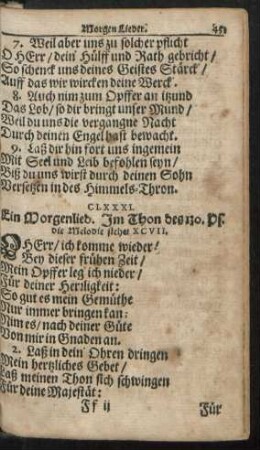 Morgen Lieder. 451
7. Weil aber uns zu solcher pflicht
O HErr/ dein' Hülff und Rath gebricht/
So schenck uns deines Geistes Stärck/
Auff das wir wircken deine Werck.
8. Auch nim zum Opffer an itzund
Das Lob/ so dir bringt unser Mund/
Weil du uns die vergangne Nacht
Durch deinen Engel hast bewacht.
9. Laß dir hin fort uns ingemein
Mit Seel und Leib befohlen seyn/
Biß du uns wirst durch deinen Sohn
Versetzen in des Himmels-Thron.
CLXXXI.
Ein Morgenlied. Im Thon des 130. Ps.
die Melodie siehe XCVII.
O HErr/ ich komme wieder/
Bey dieser frühen Zeit/
Mein Opffer leg ich nieder/
Für deiner Herligkeit:
So gut es mein Gemüthe
Nur immer bringen kan:
Nim es/ nach deiner Güte
Von mir in Gnaden an.
2. Laß in dein' Ohren dringen
Mein hertzliches Gebet/
Laß meinen Thon sich schwingen
Für deine Majestät:
Ff ij Für